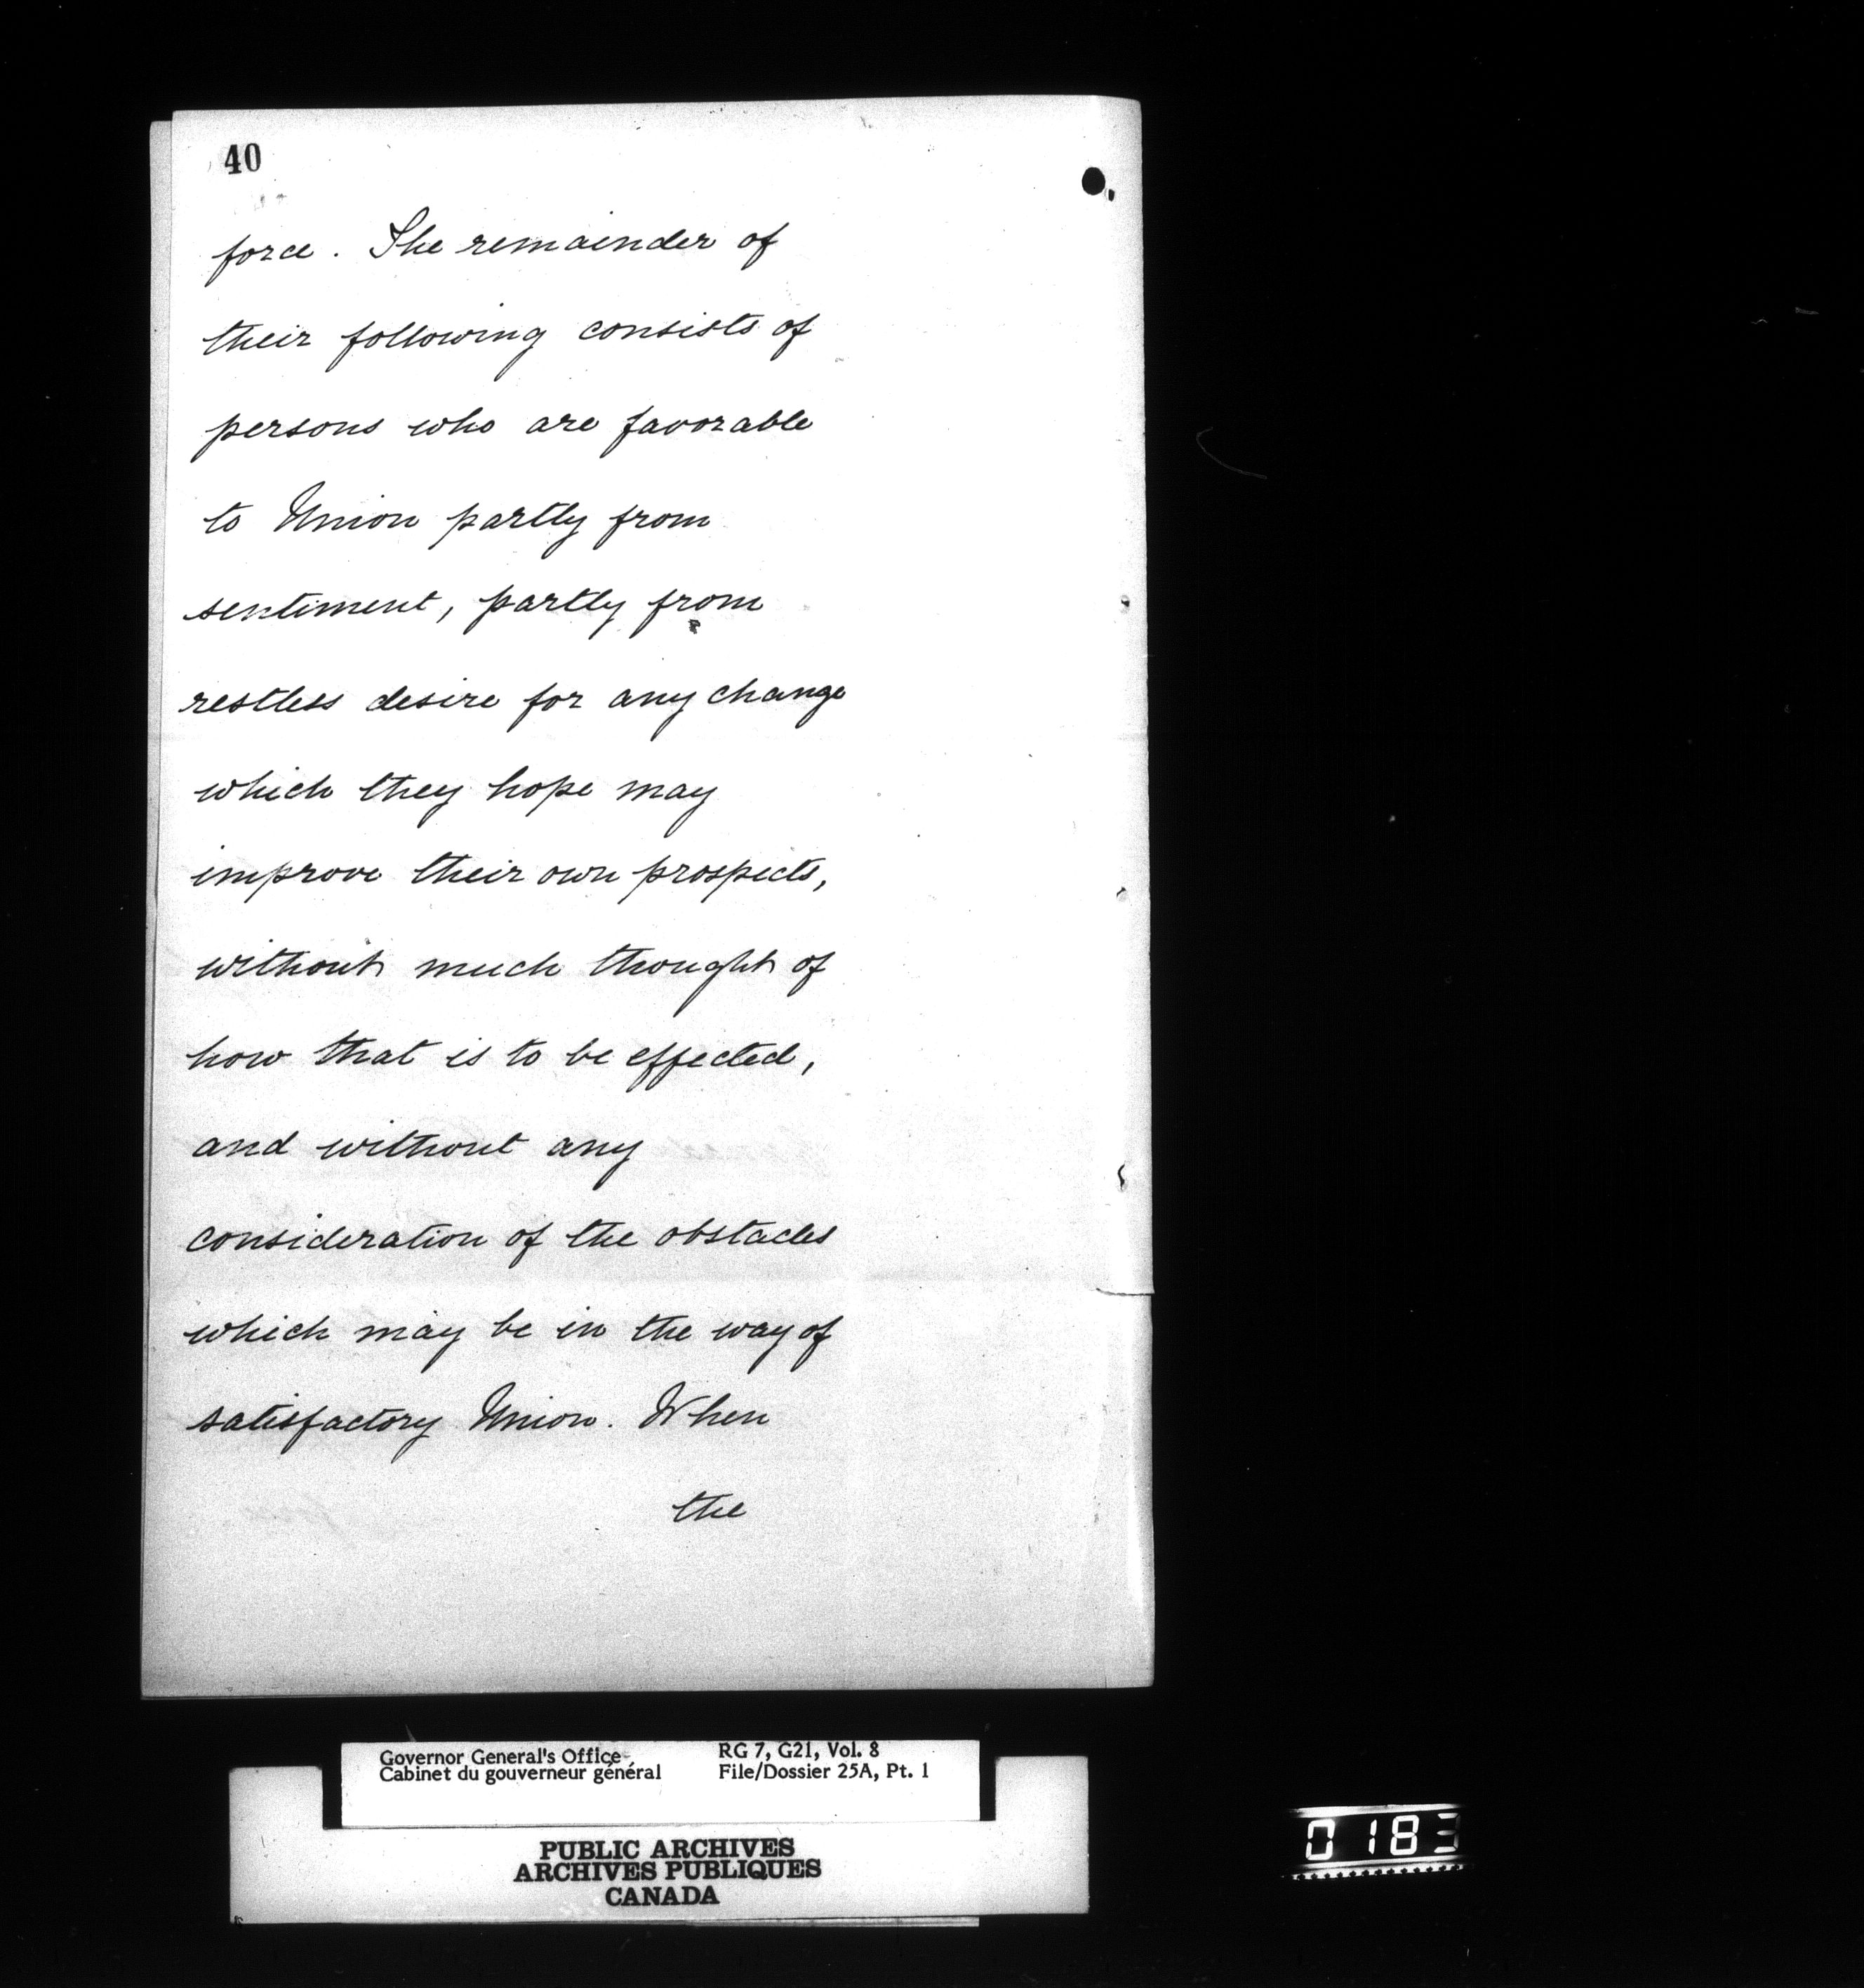 40
force. The remainder of
their following consists of
persons who are favorable
to Union partly from
sentiment, partly from
restless desire for any change
which they hope may
improve their own prospects,
without much thought of
how that is to be effected,
and without any
consideration of the obstacles
which may be in the way of
satisfactory Union. When
the
Governor General's Office
Cabinet du gouverneur général
RG 7, G21, Vol. 8
File/Dossier 25A, Pt. 1
PUBLIC ARCHIVES
ARCHIVES PUBLIQUES
CANADA
0183